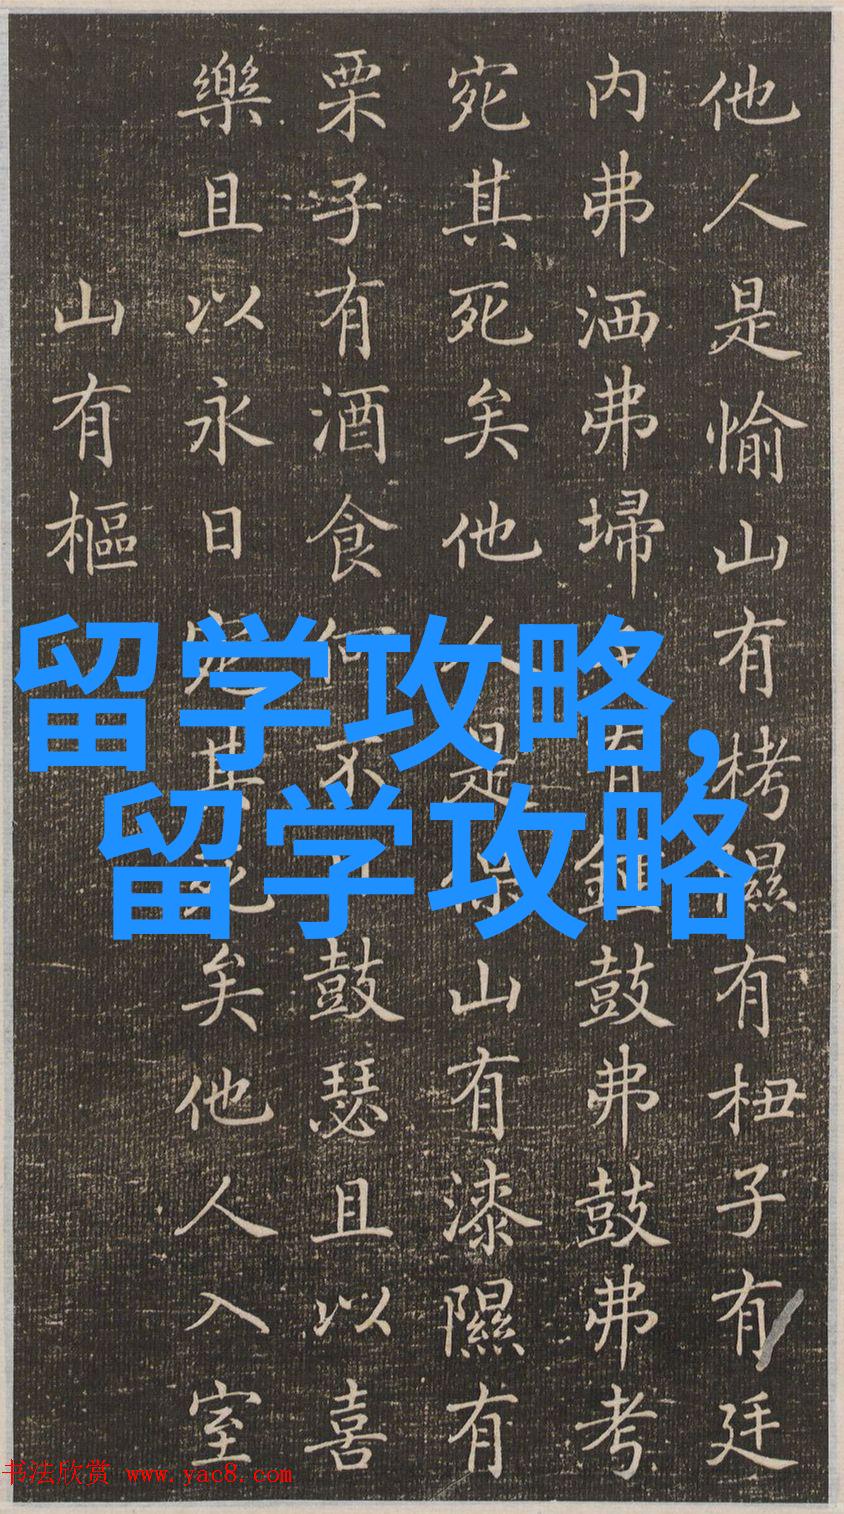 他人是愉山有栲隰有杻子有廷
内弗洒弗埽子有鍾鼓弗鼓弗考
宛其死矣他人是保山有漆隰有
栗子有酒食何不鼓瑟且以喜
樂且以永日宛其死矣他人入室
山有樞
留学攻略,
留学攻略
书法欣赏 www.yac8.com